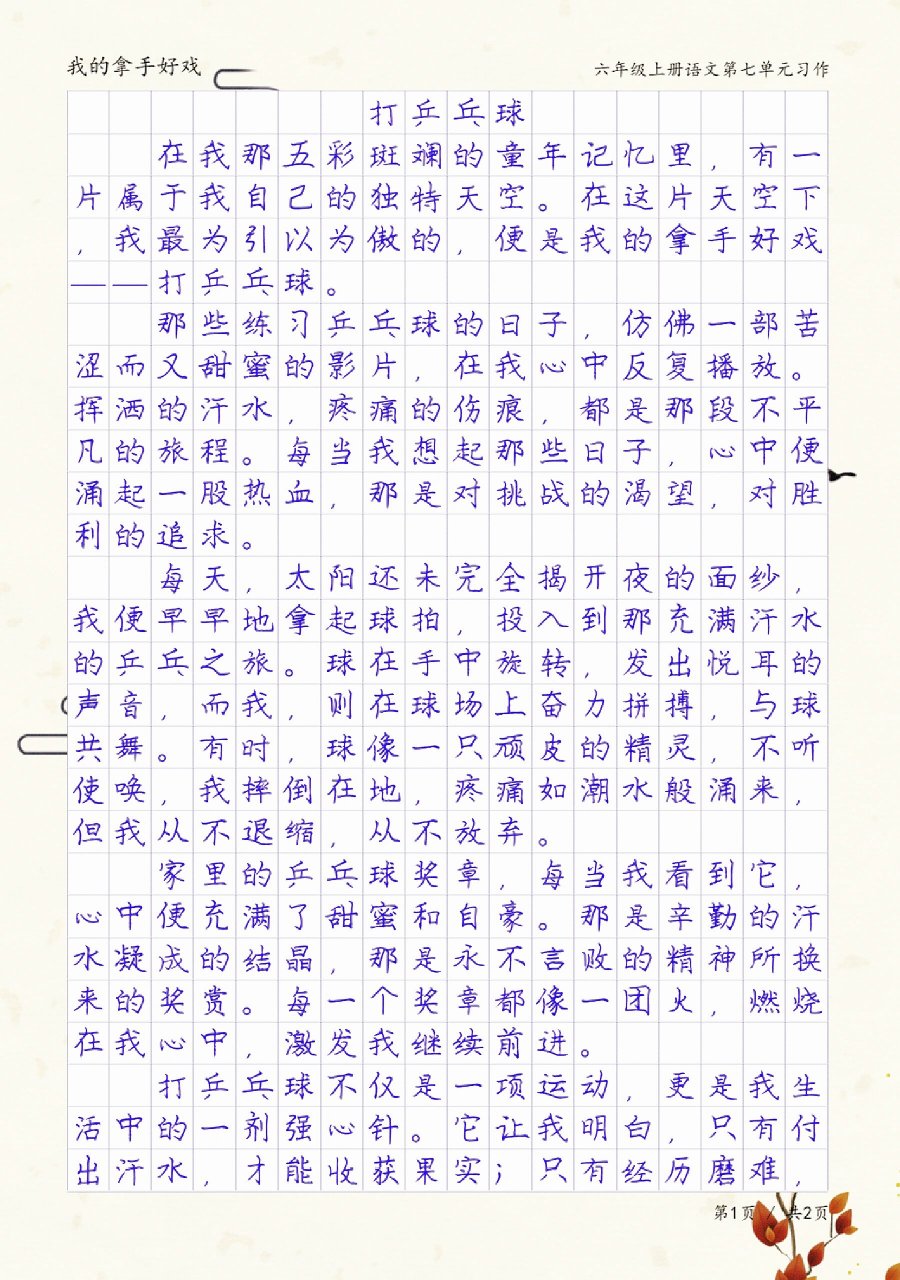 我的拿手好戏
六年级上册语文第七单元习作
打乒乓球
在我那五彩斑斓的童年记忆里，有一
片属于我自己的独特天空。在这片天空下
，我最为引以为傲的，便是我的拿手好戏
——打乒乓球。
那些练习乒乓球的日子，仿佛一部苦
涩而又甜蜜的影片，在我心中反复播放。
挥洒的汗水，疼痛的伤痕，都是那段不平
凡的旅程。每当我想起那些日子，心中便
涌起一股热血，那是对挑战的渴望，对胜
利的追求。
每天，太阳还未完全揭开夜的面纱，
我便早早地拿起球拍，投入到那充满汗水
的乒乓之旅。球在手中旋转，发出悦耳的
声音，而我，则在球场上奋力拼搏，与球
共舞。有时，球像一只顽皮的精灵，不听
使唤，我摔倒在地，疼痛如潮水般涌来，
但我从不退缩，从不放弃。
家里的乒乓球奖章，每当我看到它，
心中便充满了甜蜜和自豪。那是辛勤的汗
水凝成的结晶，那是永不言败的精神所换
来的奖赏。每一个奖章都像一团火，燃烧
在我心中，激发我继续前进。
打乒乓球不仅是一项运动，更是我生
活中的一剂强心针。它让我明白，只有付
出汗水，才能收获果实；只有经历磨难，
第1页 / 共2页